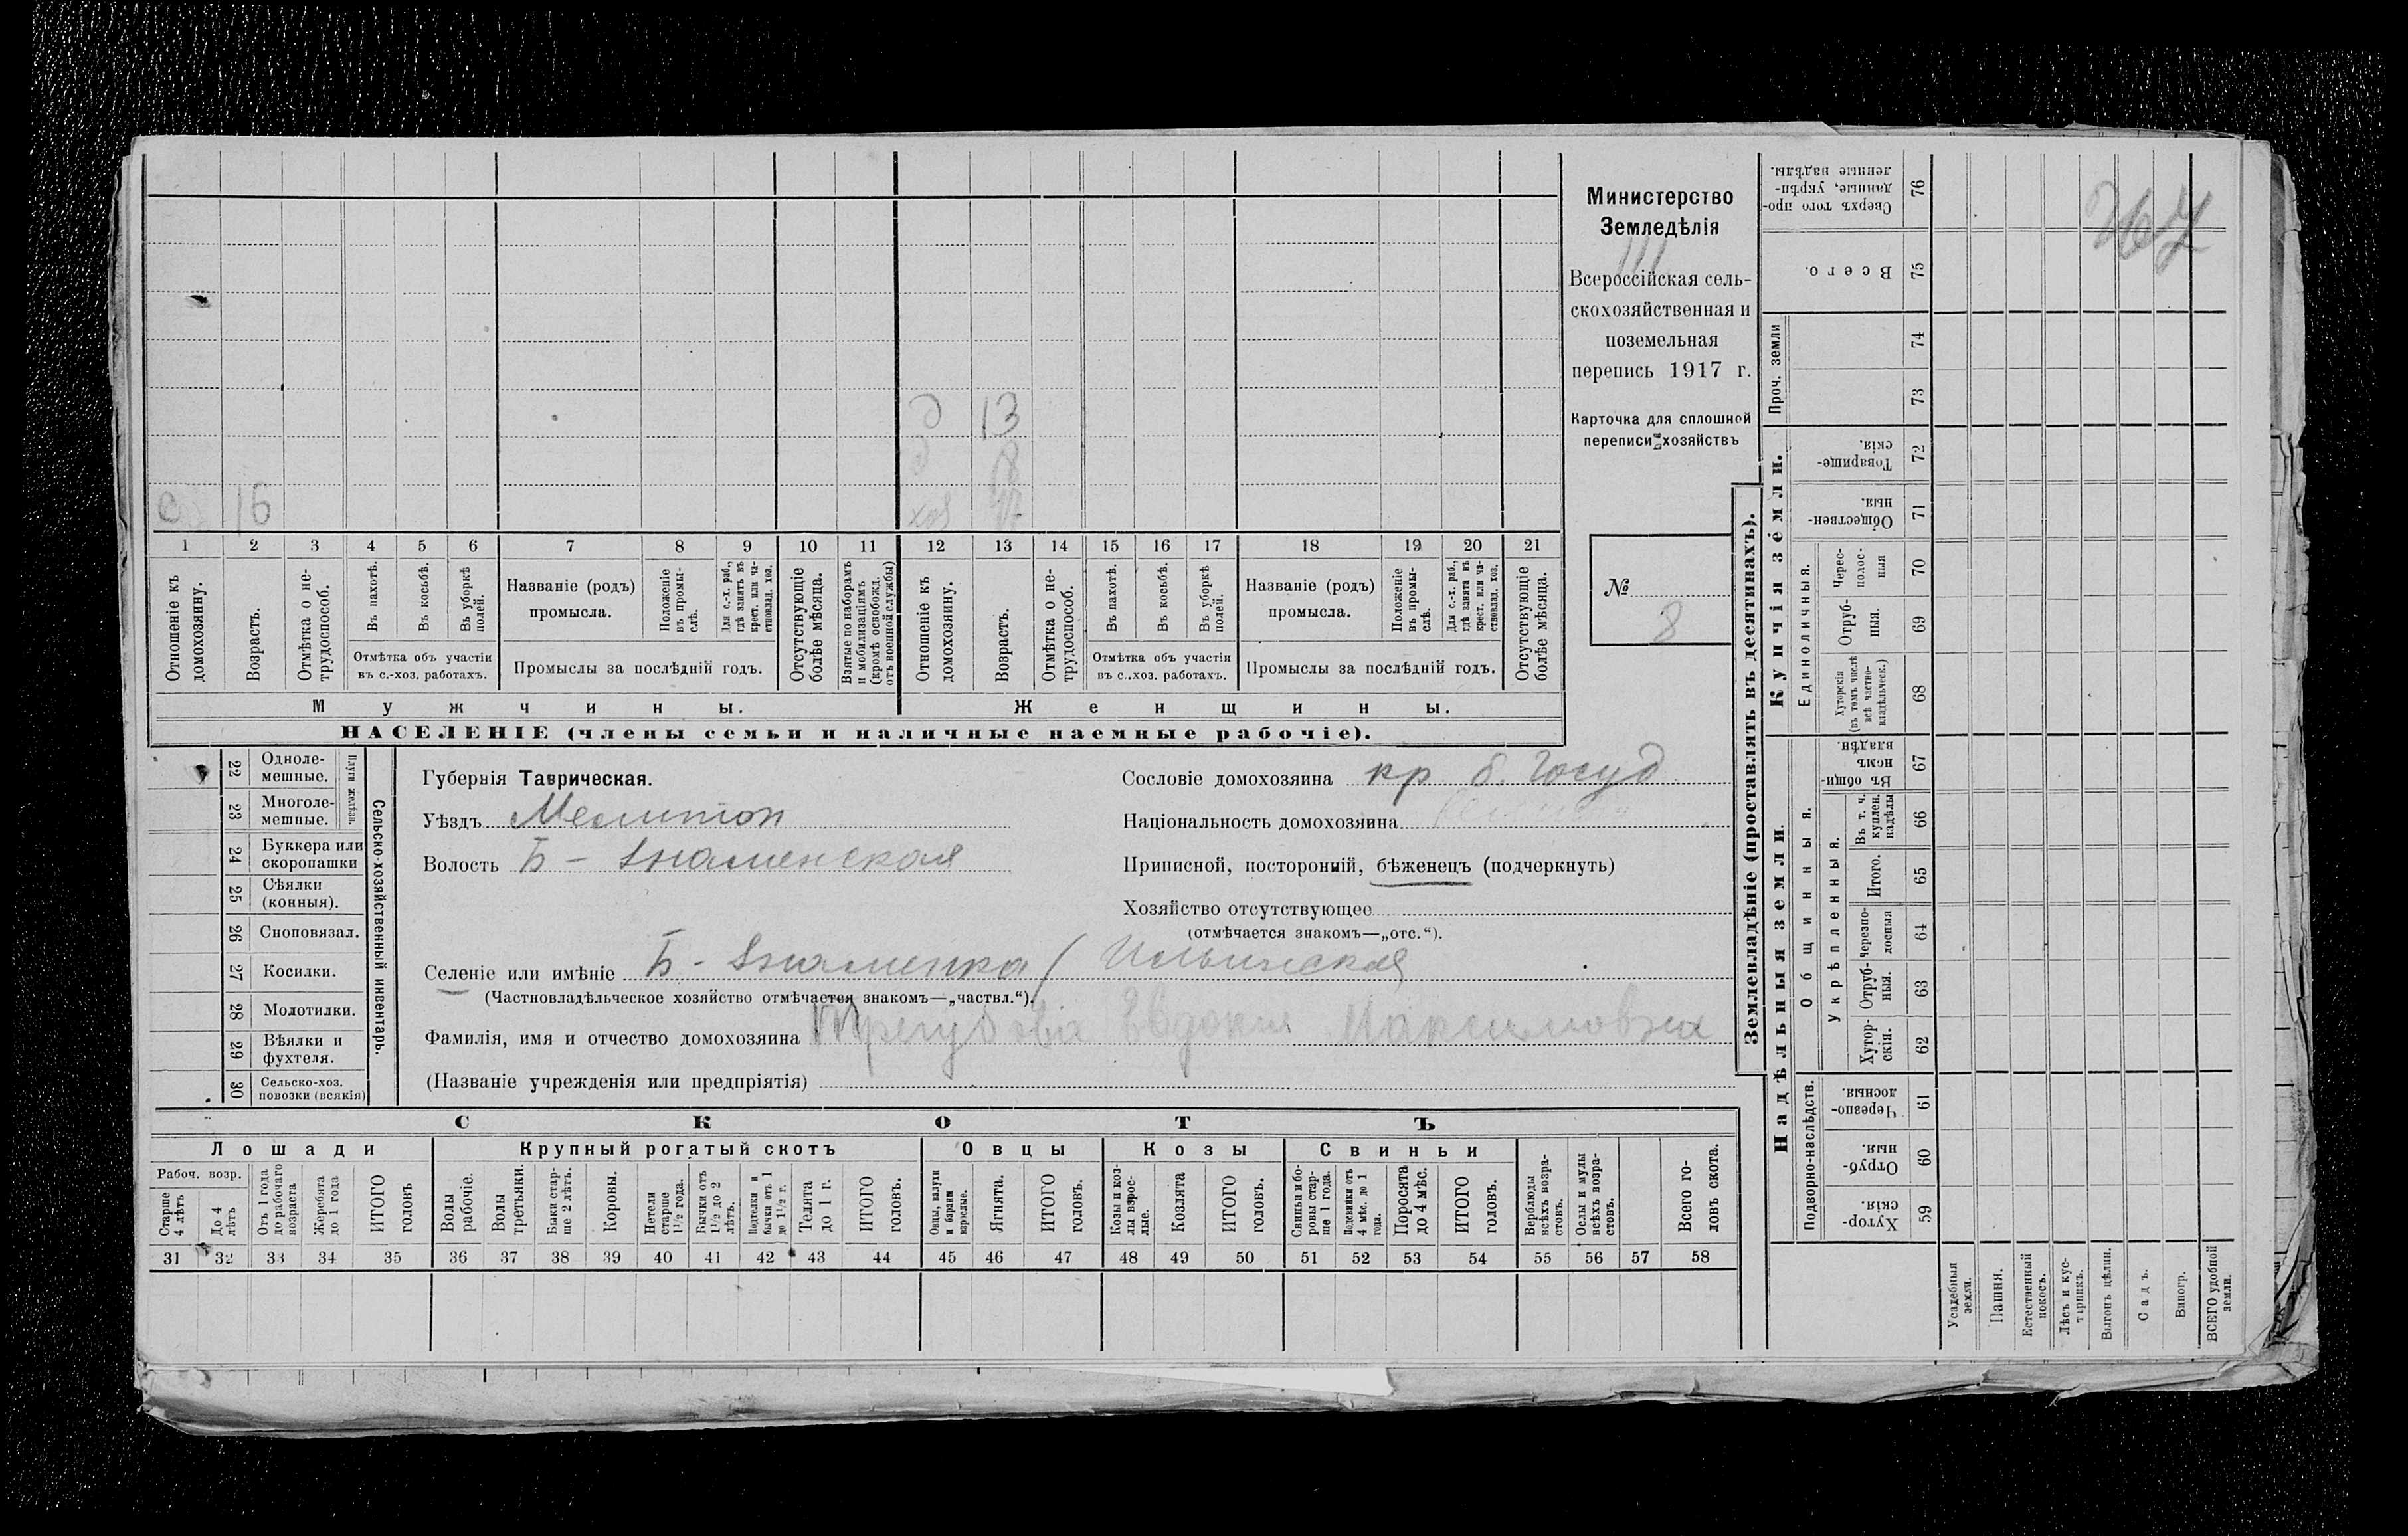 Министерство
Земледѣлія
III
Всероссійская сель-
скохозяйственная и
поземельная
перепись 1917 г.
Карточка для сплошной
переписи хозяйствъ
№
8
д 13
д 8
с 16 хоз
1 2 3 4 5 6 7 8 9 10 11 12 13 14 15 16 17 18 19 20 21
Отношеніе къ домохозяину.
Возрастъ.
Отмѣтка о не-трудоспособ.
Въ пахотѣ.
Въ косьбѣ.
Въ уборкѣ полей.
Отмѣтка объ участіи
въ с.-хоз. работахъ.
Названіе (родъ)
промысла.
Положеніе въ промы-слѣ.
Для с.-х. раб., гдѣ занятъ въ крест. или ча-стновлад. хоз.
Промыслы за послѣдній годъ.
Отсутствующіе болѣе мѣсяца.
Взятые по наборамъ и мобилизаціямъ (кромѣ освобожд. отъ военной службы)
Отношеніе къ домохозяину.
Возрастъ.
Отмѣтка о не-трудоспособ.
Въ пахотѣ.
Въ косьбѣ.
Въ уборкѣ полей.
Отмѣтка объ участіи
въ с.-хоз. работахъ.
Названіе (родъ)
промысла.
Положеніе въ промы-слѣ.
Для с.-х. раб., гдѣ занята въ крест. или ча-стновлад. хоз.
Промыслы за послѣдній годъ.
Отсутствующіе болѣе мѣсяца.
Мужчины. Женщины.
НАСЕЛЕНІЕ (члены семьи и наличные наемные рабочіе).
22 Одноле-мешные.
23 Многоле-мешные.
Плуги желѣзн.
24 Буккера или скоропашки
25 Сѣялки (конныя).
26 Сноповязал.
27 Косилки.
28 Молотилки.
29 Вѣялки и фухтеля.
30 Сельско-хоз. повозки (всякія)
Сельско-хозяйственный инвентарь.
Губернія Таврическая.
Уѣздъ Мелитоп
Волость Б - Знаменская
Сословіе домохозяина кр. б. Госуд
Національность домохозяина
Приписной, посторонній, бѣженецъ (подчеркнуть)
Хозяйство отсутствующее
(отмѣчается знакомъ—„отс.“).
Селеніе или имѣніе Б - Знаменка / Ильинская
(Частновладѣльческое хозяйство отмѣчается знакомъ—„частвл.“).
Фамилія, имя и отчество домохозяина Трегубова Евдокия Максимовна
(Названіе учрежденія или предпріятія)
СКОТЪ
Лошади Крупный рогатый скотъ Овцы Козы Свиньи
Рабоч. возр.
Старше 4 лѣтъ
До 4 лѣтъ
Отъ 1 года до рабочаго возраста
Жеребята до 1 года
ИТОГО головъ
Волы рабочіе.
Волы третьяки.
Быки стар-ше 2 лѣтъ.
Коровы.
Нетели старше 1½ года.
Бычки отъ 1½ до 2 лѣтъ.
Подтелки и бычки отъ 1 до 1½ г.
Телята до 1 г.
ИТОГО головъ.
Овцы, валухи и бараны взрослые.
Ягнята.
ИТОГО головъ.
Козы и коз-лы взрос-лые.
Козлята
ИТОГО головъ.
Свиньи и бо-ровы стар-ше 1 года.
Подсвинки отъ 4 мѣс. до 1 года.
Поросята до 4 мѣс.
ИТОГО головъ.
Верблюды всѣхъ возра-стовъ.
Ослы и мулы всѣхъ возра-стовъ.
Всего го-ловъ скота.
31 32 33 34 35 36 37 38 39 40 41 42 43 44 45 46 47 48 49 50 51 52 53 54 55 56 57 58
Землевладѣніе (проставлять въ десятинахъ).
Купчія земли.
Надѣльныя земли.
76 Сверхъ того про-данные, укрѣп-ленные надѣлы.
75 Всего.
Проч. земли
74
73
72 Товарище-скія.
71 Обществен-ныя.
Единоличныя.
70 Черес-полос-ныя
69 Отруб-ныя.
68 Хуторскія (въ томъ числѣ всѣ частно-владѣльческ.)
Общинныя.
67 Въ общи-номъ владѣн.
Укрѣпленныя.
66 Въ т. ч. куплен. надѣлы
65 Итого.
64 Черезпо-лосныя
63 Отруб-ныя.
62 Хутор-скія.
Подворно-наслѣдств.
61 Черезпо-лосныя.
60 Отруб-ныя.
59 Хутор-скія.
Усадебныя земли.
Пашня.
Естественный покосъ.
Лѣсъ и кус-тарникъ.
Выгонъ цѣлин.
Садъ.
Виногр.
ВСЕГО удобной земли.